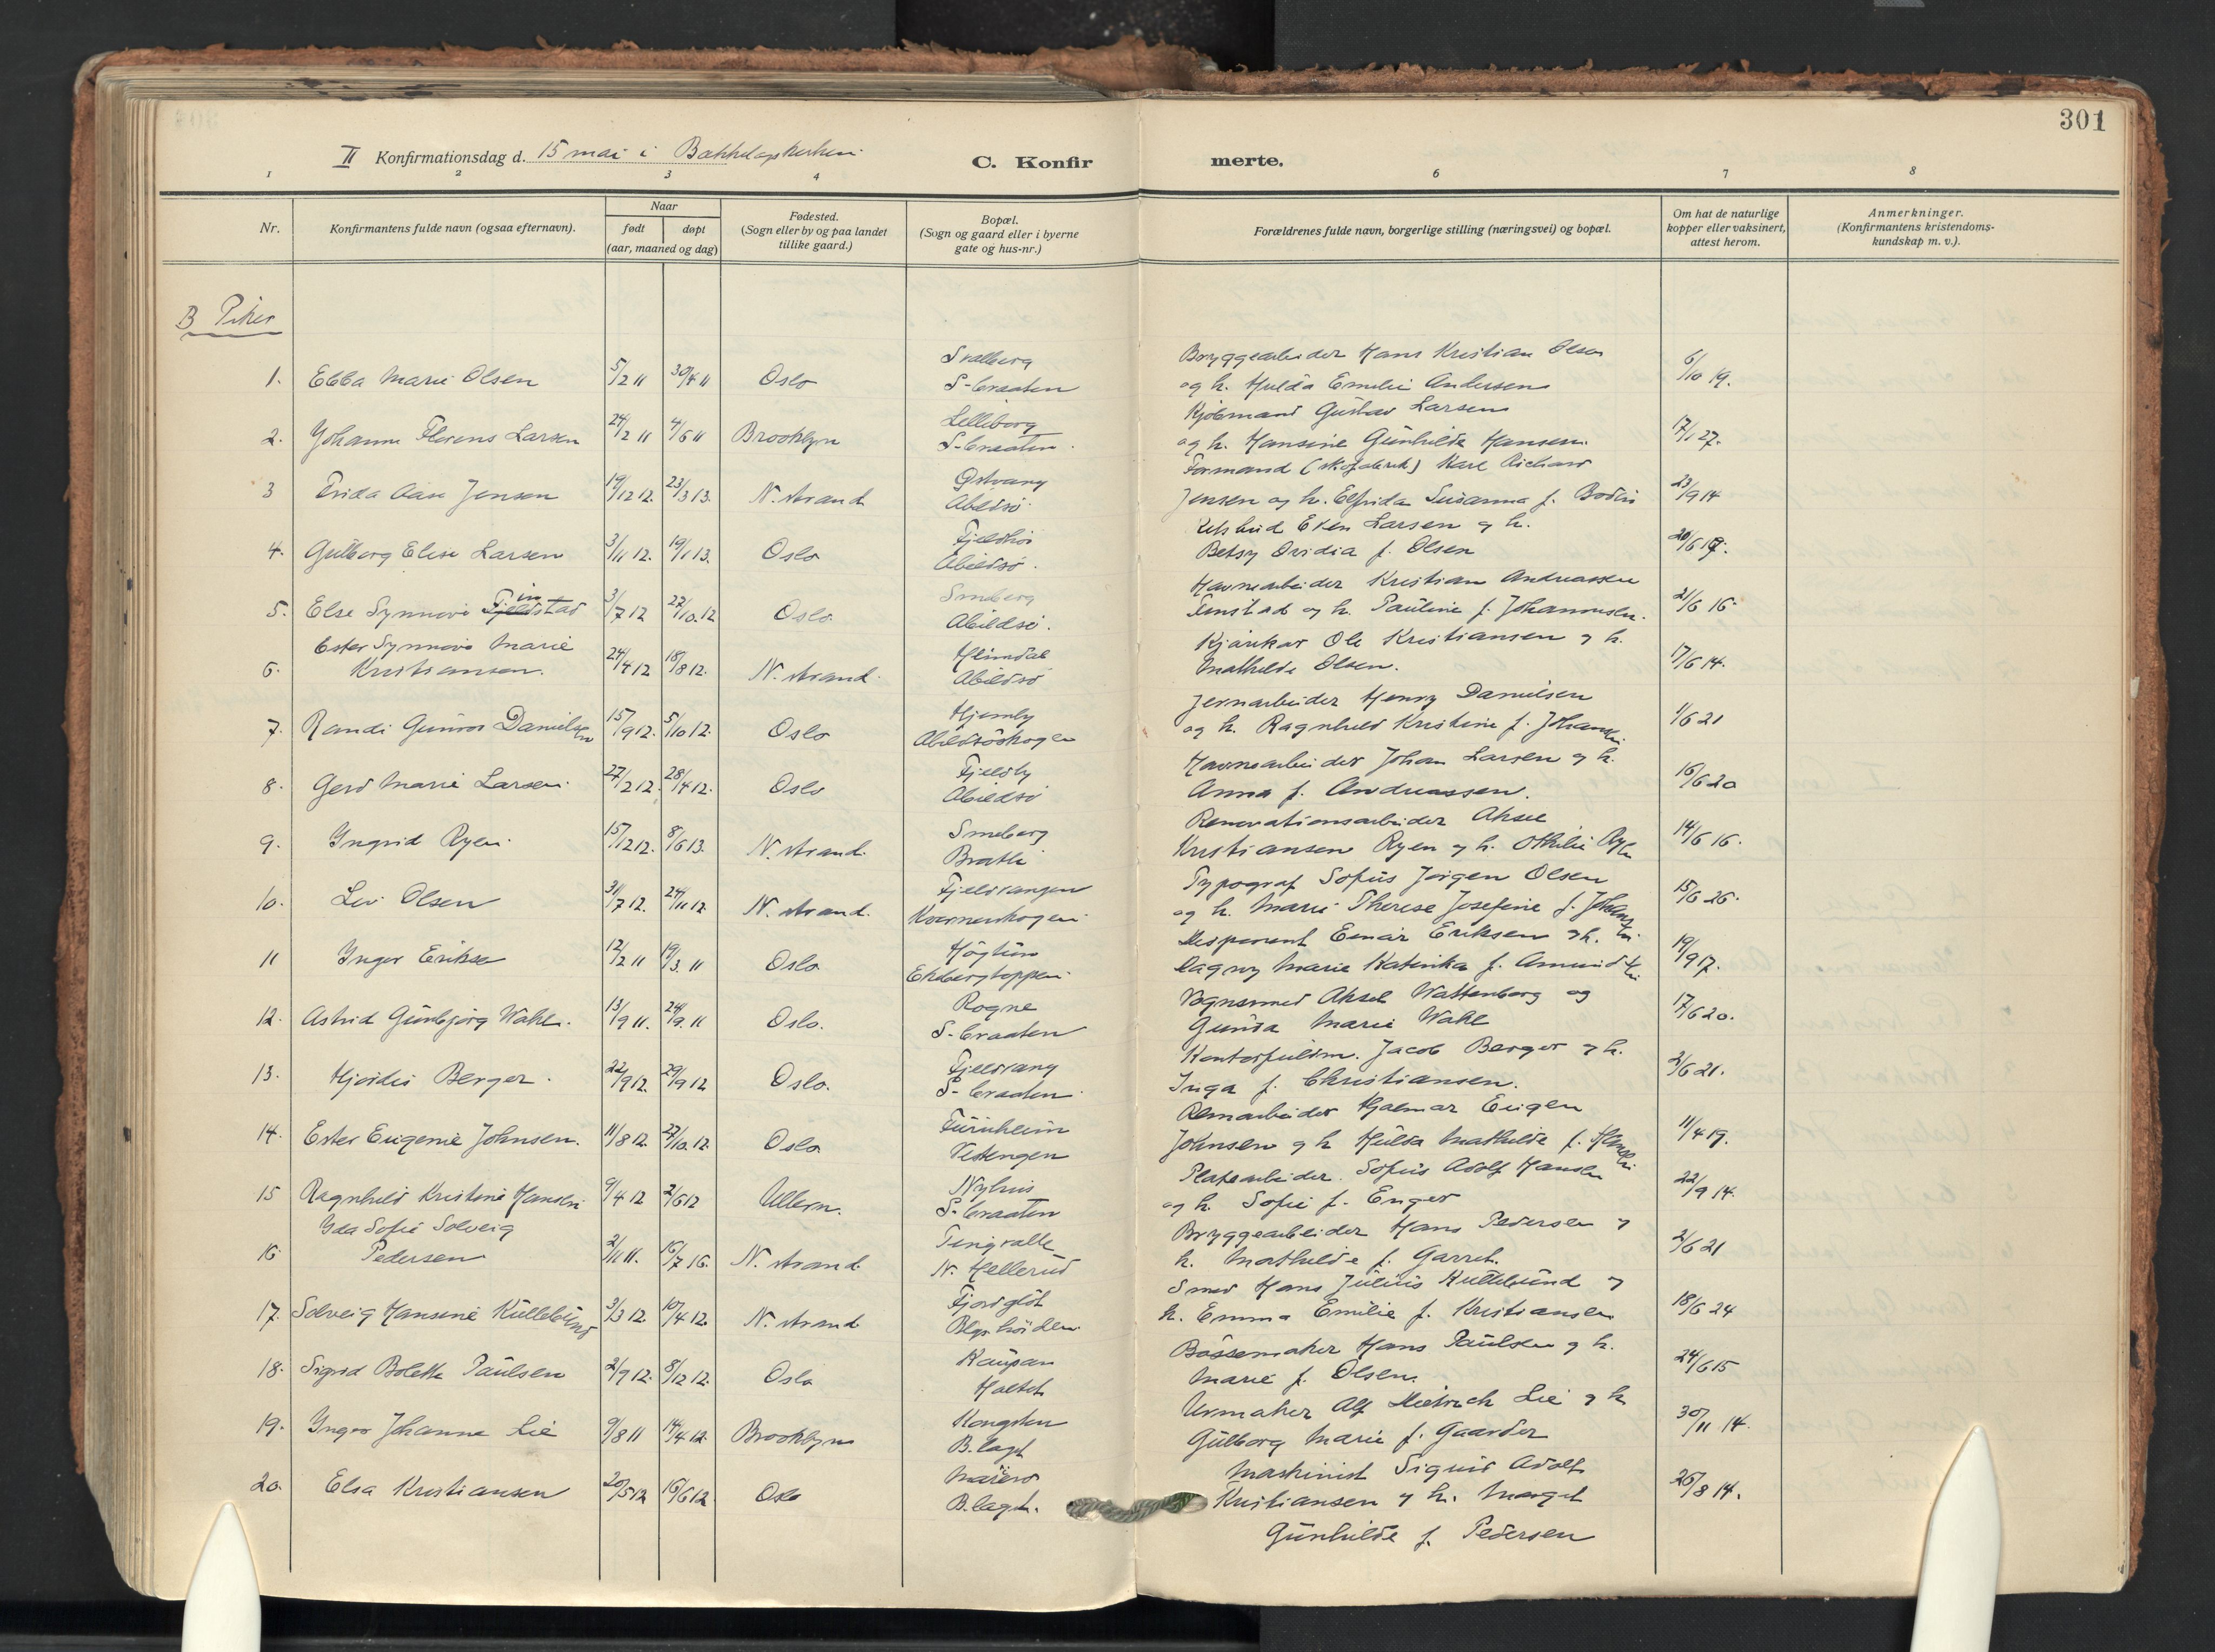 301
II Konfirmationsdag d. 15 mai i Bækkelagskirken
C. Konfirmerte.
1 2 3 4 6 7 8
Nr.
Konfirmantens fulde navn (ogsaa efternavn).
Naar
født døpt
(aar, maaned og dag)
Fødested.
(Sogn eller by og paa landet
tillike gaard.)
Bopæl.
(Sogn og gaard eller i byerne
gate og hus-nr.)
Forældrenes fulde navn, borgerlige stilling (næringsvei) og bopæl.
Om hat de naturlige
kopper eller vaksinert,
attest herom.
Anmerkninger.
(Konfirmantens kristendoms-
kundskap m. v.).
B Piker
Solberg Bryggearbeider Hans Kristian Olsen
1. Ebba Marie Olsen 5/2 11 30/4 11 Oslo S-braaten og h. Hulda Emelie Andersen 6/10 19.
Lilleborg Kjøbmand Gustav Larsen
2. Johanne Florens Larsen 24/2 11 4/6 11 Brooklyn S-braaten. og h. Hansine Gunhilde Hansen. 17/1 27.
Østvang Formand (skofabrik) Karl Richard
3 Frida Aase Jensen 19/12 12. 23/3 13. N. strand Abildsö. Jensen og h. Elfrida Susanna f. Bodin 23/9 14
Fjeldhöi Larsen og h.
4. Gulborg Elise Larsen 3/11 12. 19/1 13. Oslo Abildsö. Betsy Ovidia f. Olsen 20/6 19.
Smeberg Havnearbeider Kristian Andreassen
5. Else Synnøve Finstad 3/7 12 27/10. 12 Oslo Abildsö. Finstad og h. Pauline f. Johannesen. 21/6 16.
Ester Synnøve Marie Heimdal Kjörekar Ole Kristiansen og h.
6. Kristiansen. 24/4 12 18/8 12. N. strand. Abildsö Mathilde Olsen. 17/6 14.
Hjemly Jernarbeider Henry Danielsen
7. Randi Gunvor Danielsen 15/9 12. 5/10 12. Oslo Abildsöskogen og h. Ragnhild Kristine f. Johansen 1/6 21
Fjeldby Havnearbeider Johan Larsen og h.
8. Gerd Marie Larsen. 27/2 12. 28/4 12. Oslo Abildsö Anna f. Andreassen. 16/6 20
Smeberg Renovationsarbeider Aksel
9. Ingrid Ryen. 15/12 12. 8/6 13. N. strand. Bratli Kristiansen Ryen og h. Othilie Ryen 14/6 16.
Fjeldvangen Typograf Sofus Jörgen Olsen
10. Liv Olsen 31/7 12. 24/11 12 N. strand. Kvernerskogen. og h. Marie Therese Josefine f. Johansen. 15/6 26.
Högtun Disponent Einar Eriksen og h.
11 Inger Eriksen 12/2 11 19/3. 11 Oslo Ekebergtoppen. Dagny Marie Katinka f. Amundsen 19/9 17.
Rogne Vognsmed Aksel Wattenberg og
12. Astrid Gunbjörg Wahl. 13/9 11. 24/9. 11 Oslo. S-braaten Gunda Marie Wahl 17/6 20.
Fjeldvang Kontorfuldm. Jacob Berger og h.
13. Hjördis Berger. 22/9 12. 29/9 12 Oslo. S-braaten. Inga f. Christiansen. 2/6 21.
Furuheim Remarbeider Hjalmar Eugen
14. Ester Eugenie Johnsen. 11/8 12. 27/10. 12. Oslo Vestengen Johnsen og h Hulda Mathilde f. 11/4 19.
Nyhus Platearbeider. Sofus Adolf Hansen
15 Ragnhild Kristine Hansen 9/4 12 2/6 12 Ullern. S-braaten og h. Sofie f. Enger 22/9 14.
Ida Sofie Solveig Tingvalle Bryggearbeider Hans Pedersen og
16 Pedersen 2/11 11. 16/7 16. N. strand N. Hellerud h. Mathilde f. Garreth. 2/6 21
Fjordgløt Smed Hans Julius Kullebund og
17. Solveig Hansine Kullebund 3/3 12. 10/4 12. N. strand h. Emma Emilie f. Kristiansen 18/6 24
Kaupan Bössemaker Hans Paulsen og h.
18. Sigrid Bolette Paulsen 2/9 12. 8/12 12. Oslo Holtet Marie f. Olsen 24/6 15
Kongsten Urmaker Alf Lie og h
19. Inger Johanne Lie 9/8 11 14/4 12 Brooklyn B.lagt Gulborg Marie f. Gaarder 30/11 14.
Maskinist Sigurd Adolf
20. Elsa Kristiansen 20/5 12 16/6 12. Oslo B.lagt. Kristiansen og h. Margit 26/8 14.
Gunhilde f. Pedersen